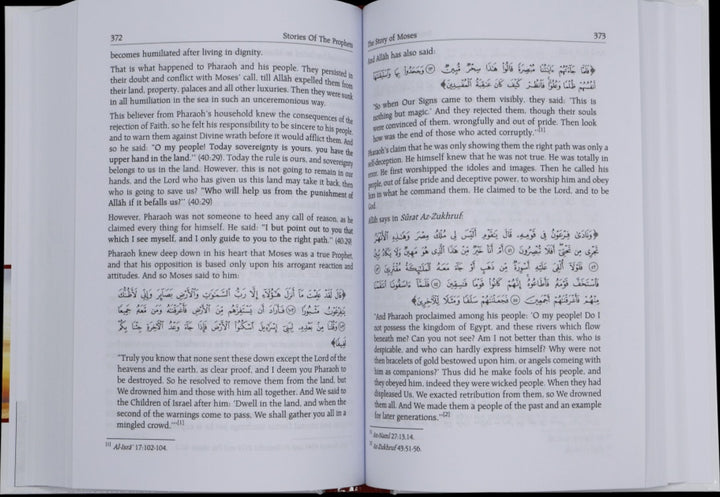 372
Stories Of The Prophets
becomes humiliated after living in dignity.
That is what happened to Pharaoh and his people. They persisted in
their doubt and conflict with Moses' call, till Allāh expelled them from
their land, property, palaces and all other luxuries. Then they were sunk
in all humiliation in the sea in such an unceremonious way.
This believer from Pharaoh's household knew the consequences of the
rejection of Faith, so he felt his responsibility to be sincere to his people,
and to warn them against Divine wrath before it would afflict them. And
so he said: "O my people! Today sovereignty is yours, you have the
upper hand in the land." (40:29). Today the rule is ours, and sovereignty
belongs to us in the land. However, this is not going to remain in our
hands, and the Lord who has given us this land may take it back, then
who is going to save us? "Who will help us from the punishment of
Allāh if it befalls us?" (40:29)
However, Pharaoh was not someone to heed any call of reason, as he
claimed every thing for himself. He said: "I but point out to you that
which I see myself, and I only guide to you to the right path." (40:29)
Pharaoh knew deep down in his heart that Moses was a true Prophet,
and that his opposition is based only upon his arrogant reaction and
attitudes. And so Moses said to him:
﴿قَالَ لَقَدْ عَلِمْتَ مَا أَنزَلَ هَٰؤُلَاءِ إِلَّا رَبُّ السَّمَٰوَٰتِ وَالْأَرْضِ بَصَائِرَ وَإِنِّي لَأَظُنُّكَ
يَٰفِرْعَوْنُ مَثْبُورًا ۝ فَأَرَادَ أَن يَسْتَفِزَّهُم مِّنَ الْأَرْضِ فَأَغْرَقْنَٰهُ وَمَن مَّعَهُ جَمِيعًا
۝ وَقُلْنَا مِنْ بَعْدِهِ لِبَنِي إِسْرَٰٓءِيلَ اسْكُنُوا الْأَرْضَ فَإِذَا جَاءَ وَعْدُ الْآخِرَةِ جِئْنَا بِكُمْ
لَفِيفًا﴾
"Truly you know that none sent these down except the Lord of the
heavens and the earth, as clear proof, and I deem you Pharaoh to
be destroyed. So he resolved to remove them from the land, but
We drowned him and those with him all together. And We said to
the Children of Israel after him: 'Dwell in the land, and when the
second of the warnings come to pass, We shall gather you all in a
mingled crowd.'"[1]
[1] Al-Isrā' 17:102-104.
The Story of Moses
373
And Allāh has also said:
﴿فَلَمَّا جَاءَتْهُمْ ءَايَٰتُنَا مُبْصِرَةً قَالُوا هَٰذَا سِحْرٌ مُّبِينٌ ۝ وَجَحَدُوا بِهَا وَاسْتَيْقَنَتْهَا
أَنفُسُهُمْ ظُلْمًا وَعُلُوًّا فَانظُرْ كَيْفَ كَانَ عَٰقِبَةُ الْمُفْسِدِينَ﴾
"So when Our Signs came to them visibly, they said: 'This is
nothing but magic.' And they rejected them, though their souls
were convinced of them, wrongfully and out of pride. Then look
how was the end of those who acted corruptly."[1]
Pharaoh's claim that he was only showing them the right path was only a
self-deception. He himself knew that he was not true. He was totally in
error. He first worshipped the idoles and images. Then he called his
people, out of false pride and deceptive power, to worship him and obey
him in what he command them. He claimed to be the Lord, and to be
God.
Allāh says in Sūrat Az-Zukhruf:
﴿وَنَادَىٰ فِرْعَوْنُ فِي قَوْمِهِ قَالَ يَٰقَوْمِ أَلَيْسَ لِي مُلْكُ مِصْرَ وَهَٰذِهِ الْأَنْهَٰرُ
تَجْرِي مِن تَحْتِي أَفَلَا تُبْصِرُونَ ۝ أَمْ أَنَا خَيْرٌ مِّنْ هَٰذَا الَّذِي هُوَ مَهِينٌ وَلَا يَكَادُ يُبِينُ
۝ فَلَوْلَا أُلْقِيَ عَلَيْهِ أَسْوِرَةٌ مِّن ذَهَبٍ أَوْ جَاءَ مَعَهُ الْمَلَٰئِكَةُ مُقْتَرِنِينَ ۝
فَاسْتَخَفَّ قَوْمَهُ فَأَطَاعُوهُ إِنَّهُمْ كَانُوا قَوْمًا فَٰسِقِينَ ۝ فَلَمَّا ءَاسَفُونَا انتَقَمْنَا
مِنْهُمْ فَأَغْرَقْنَٰهُمْ أَجْمَعِينَ ۝ فَجَعَلْنَٰهُمْ سَلَفًا وَمَثَلًا لِّلْآخِرِينَ﴾
"And Pharaoh proclaimed among his people: 'O my people! Do I
not possess the kingdom of Egypt, and these rivers which flow
beneath me? Can you not see? Am I not better than this, who is
despicable, and who can hardly express himself? Why were not
then bracelets of gold bestowed upon him, or angels comeing with
him as companions?' Thus did he make fools of his people, and
they obeyed him, indeed they were wicked people. When they had
displeased Us, We exacted retribution from them, so We drowned
them all. And We made them a people of the past and an example
for later generations."[2]
[1] An-Naml 27:13,14.
[2] Az-Zukhruf 43:51-56.